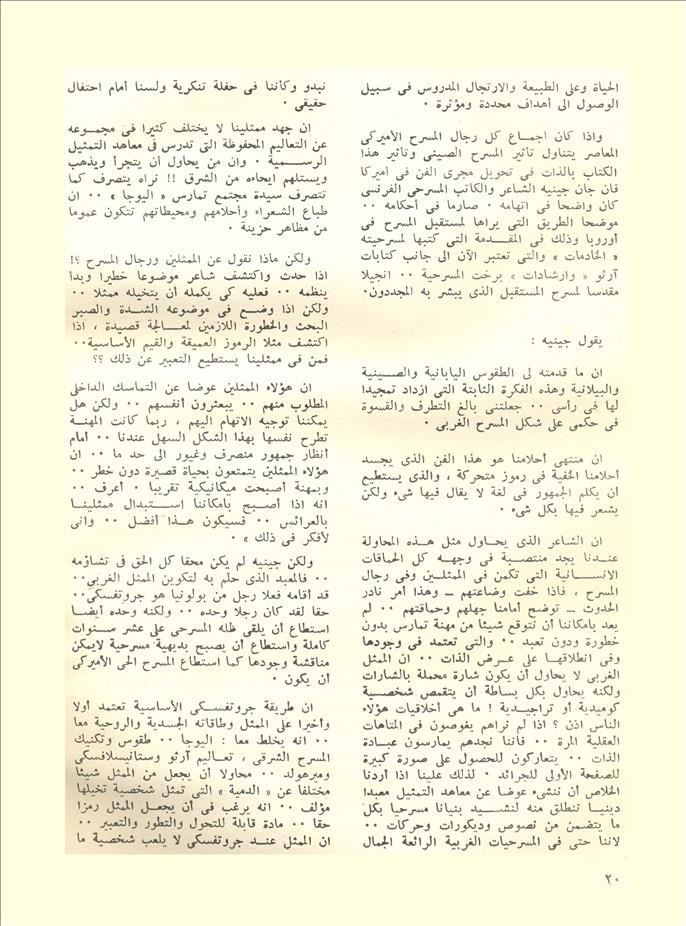 الحياة وعلى الطبيعة والارتجال المدروس فى سبيل
الوصول الى أهداف محددة ومؤثرة ٠
واذا كان اجماع كل رجال المسرح الأميركى
المعاصر يتناول تأثير المسرح الصينى وتأثير هذا
الكتاب بالذات فى تحويل مجرى الفن فى أميركا
فان جان جينيه الشاعر والكاتب المسرحى الفرنسى
كان واضحا فى اتهامه ٠ صارما فى أحكامه ٠٠
موضحا الطريق التى يراها لمستقبل المسرح فى
أوروبا وذلك فى المقدمة التى كتبها لمسرحيته
« الخادمات » والتى تعتبر الآن الى جانب كتابات
آرثو « وارشادات » برخت المسرحية ٠٠ انجيلا
مقدسا لمسرح المستقبل الذى يبشر به المجددون٠
يقول جينيه :
ان ما قدمته لى الطقوس اليابانية والصينية
والبيلانية وهذه الفكرة الثابتة التى ازداد تمجيدا
لها فى رأسى ٠٠ جعلتنى بالغ التطرف والقسوة
فى حكمى على شكل المسرح الغربى ٠
ان منتهى أحلامنا هو هذا الفن الذى يجسد
أحلامنا الخفية فى رموز متحركة ، والذى يستطيع
أن يكلم الجمهور فى لغة لا يقال فيها شىء ولكن
يشعر فيها بكل شىء ٠
ان الشاعر الذى يحاول مثل هذه المحاولة
عندنا يجد منتصبة فى وجهه كل الحماقات
الانسانية التى تكمن فى الممثلين وفى رجال
المسرح ، فاذا خفت وضاعتهم ـ وهذا أمر نادر
الحدوث ـ توضح أمامنا جهلهم وحماقتهم ٠٠ لم
يعد بامكاننا أن نتوقع شيئا من مهنة تمارس بدون
خطورة ودون تعبد ٠٠ والتى تعتمد فى وجودها
وفى انطلاقها على عرض الذات ٠٠ ان الممثل
الغربى لا يحاول أن يكون شارة محملة بالشارات
ولكنه يحاول بكل بساطة أن يتقمص شخصية
كوميدية أو تراجيدية ! ما هى أخلاقيات هؤلاء
الناس اذن ؟ اذا لم تراهم يغوصون فى المتاهات
العقلية المرة ٠٠ فأننا نجدهم يمارسون عبادة
الذات ٠٠ يتعاركون للحصول على صورة كبيرة
للصفحة الأولى للجرائد ٠ لذلك علينا اذا أردنا
الخلاص أن ننشىء عوضا عن معاهد التمثيل معبدا
دينيا ننطلق منه لنشيد بنيانا مسرحيا بكل
ما يتضمن من نصوص وديكورات وحركات ٠٠
لاننا حتى فى المسرحيات الغربية الرائعة الجمال
نبدو وكأننا فى حفلة تنكرية ولسنا أمام احتفال
حقيقى ٠
ان جهد ممثلينا لا يختلف كثيرا فى مجموعه
عن التعاليم المحفوظة التى تدرس فى معاهد التمثيل
الرسمية ٠ وان من يحاول أن يتجرأ ويذهب
ويستلهم ايحاءه من الشرق !! نراه يتصرف كما
تتصرف سيدة مجتمع تمارس « اليوجا » ٠٠ ان
طباع الشعراء وأحلامهم ومحيطاتهم تتكون عموما
من مظاهر حزينة ٠
ولكن ماذا نقول عن الممثلين ورجال المسرح ؟!
اذا حدث واكتشف شاعر موضوعا خطيرا وبدأ
ينظمه ٠٠ فعليه كى يكمله أن يتخيله ممثلا ٠٠
ولكن اذا وضع فى موضوعه الشدة والصبر
البحث والخطورة اللازمين لمعالجة قصيدة ، اذا
اكتشف مثلا الرموز العميقة والقيم الأساسية٠٠
فمن فى ممثلينا يستطيع التعبير عن ذلك ؟؟
ان هؤلاء الممثلين عوضا عن التماسك الداخلى
المطلوب منهم ٠٠ يبعثرون أنفسهم ٠٠ ولكن هل
يمكننا توجيه الاتهام اليهم ، ربما كانت المهنة
تطرح نفسها بهذا الشكل السهل عندنا ٠٠ أمام
أنظار جمهور منصرف وغيور الى حد ما ٠٠ ان
هؤلاء الممثلين يتمتعون بحياة قصيرة دون خطر ٠٠
وبمهنة أصبحت ميكانيكية تقريبا ٠ أعرف ٠٠
انه اذا أصبح بامكاننا استبدال ممثلينا
بالعرائس ٠٠ فسيكون هذا أفضل ٠٠ وانى
لأفكر فى ذلك » ٠
ولكن جينيه لم يكن محقا كل الحق فى تشاؤمه
٠٠ فالمعبد الذى حلم به لتكوين الممثل الغربى٠٠
قد أقامه فعلا رجل من بولونيا هو جروتفسكى٠٠
حقا لقد كان رجلا وحده ٠٠ ولكنه وحده أيضا
استطاع أن يلقى ظله المسرحى على عشر سنوات
كاملة واستطاع أن يصبح بديهية مسرحية لايمكن
مناقشة وجودها كما استطاع المسرح الحى الأميركى
أن يكون ٠
ان طريقة جروتفسكى الأساسية تعتمد أولا
وأخيرا على الممثل وطاقاته الجسدية والروحية معا
٠٠ انه يخلط معا : اليوجا ٠٠ طقوس وتكنيك
المسرح الشرقى ، تعاليم آرتو وستانيسلافسكى
وميرهولد ٠٠ محاولا أن يجعل من الممثل شيئا
مختلفا عن « الدمية » التى تمثل شخصية تخيلها
مؤلف ٠٠ انه يرغب فى أن يجعل الممثل رمزا
حقا ٠٠ مادة قابلة للتحول والتطور والتعبير ٠٠
ان الممثل عند جروتفسكى لا يلعب شخصية ما
٢٠